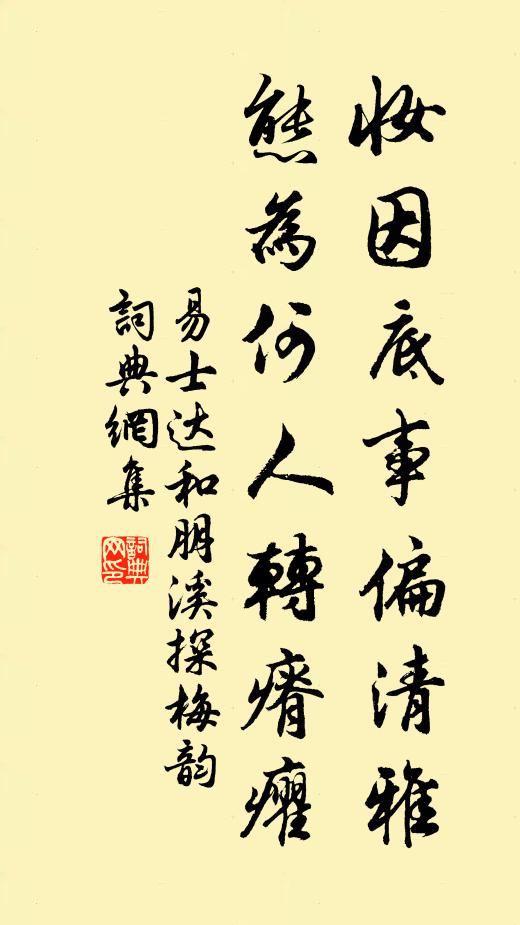 妝因底事偏清雅
態為何人轉瘠癯
易士达和朋溪探梅韵
詞典網集
詞典網印